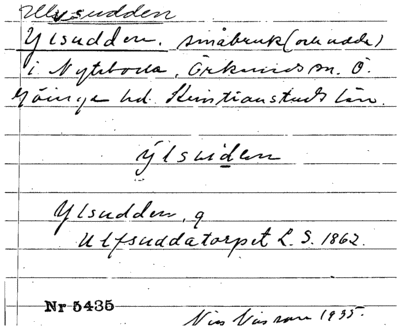 Ulvsudden
Ylsudden, småbruk (och udde)
i Nyteboda, Örkeneds sn. Ö.
Göinge hd. Kristianstads län.
ýlsuden
Ylsudden, q
Ulfsuddatorpet L. S. 1862.
Nr 5435
1935.